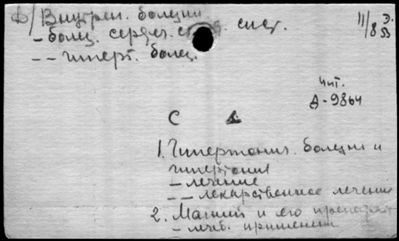 Внутрен. болезни
- болез. сердеч. с сист.
-- гиперт. болез.
11/8 53
Э.
чит.
А-9864
С
1. Гипертонич. болезни и
гипертония
- лечение
-- лекарственное лечение
2. Магний и его препарат
- леч. применен